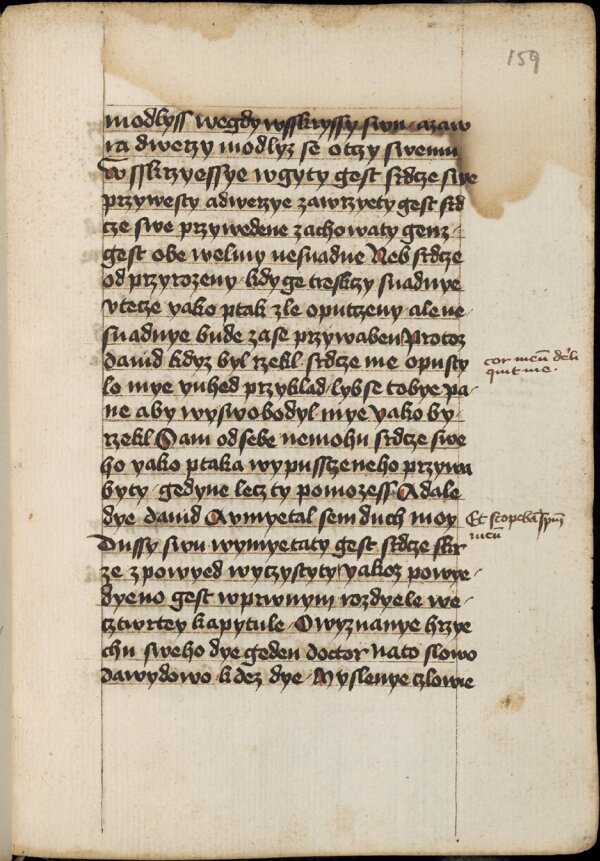 159
modlyss wegdy wsskryssy swu azaw
ra dwerzy modlyz se otczy swemu
W sskrzyessye wgyty gest srdcze swe
przywesty adwerzye zawrzyety gest srd
cze swe przywedene zachowaty genz-
gest obe welmy nesnadne Neb srdcze
od przyrozeny kdyge treskczy snadnye
vtecze yako ptak zle oputczeny alene
snadnye bude zase przywaben Protoz
dauid kdyz byl rzekl srdcze me opusty
lo mye ynhed przyklad lybse tobye pa-
ne aby wyswobodyl mye yako by-
rzekl Sam odsebe nemohu srdcze swe
ho yako ptaka wypusszeneho przywa
byty gedyne lecz ty pomozess Adale
dye dauid Avmyetal sem duch moy
Dussy swu wymyetaty gest srdcze skr
ze zpowyed wyczystyty yakoz powye-
dyeno gest wprwnym rozdyele we-
cztwrtey kapytule Owyznanye hrzye
chu sweho dye geden doctor nato slowo
dawydowo kdez dye Myslenye czlowie
cor meu deli
quit me.
Et scopeba spm
meu